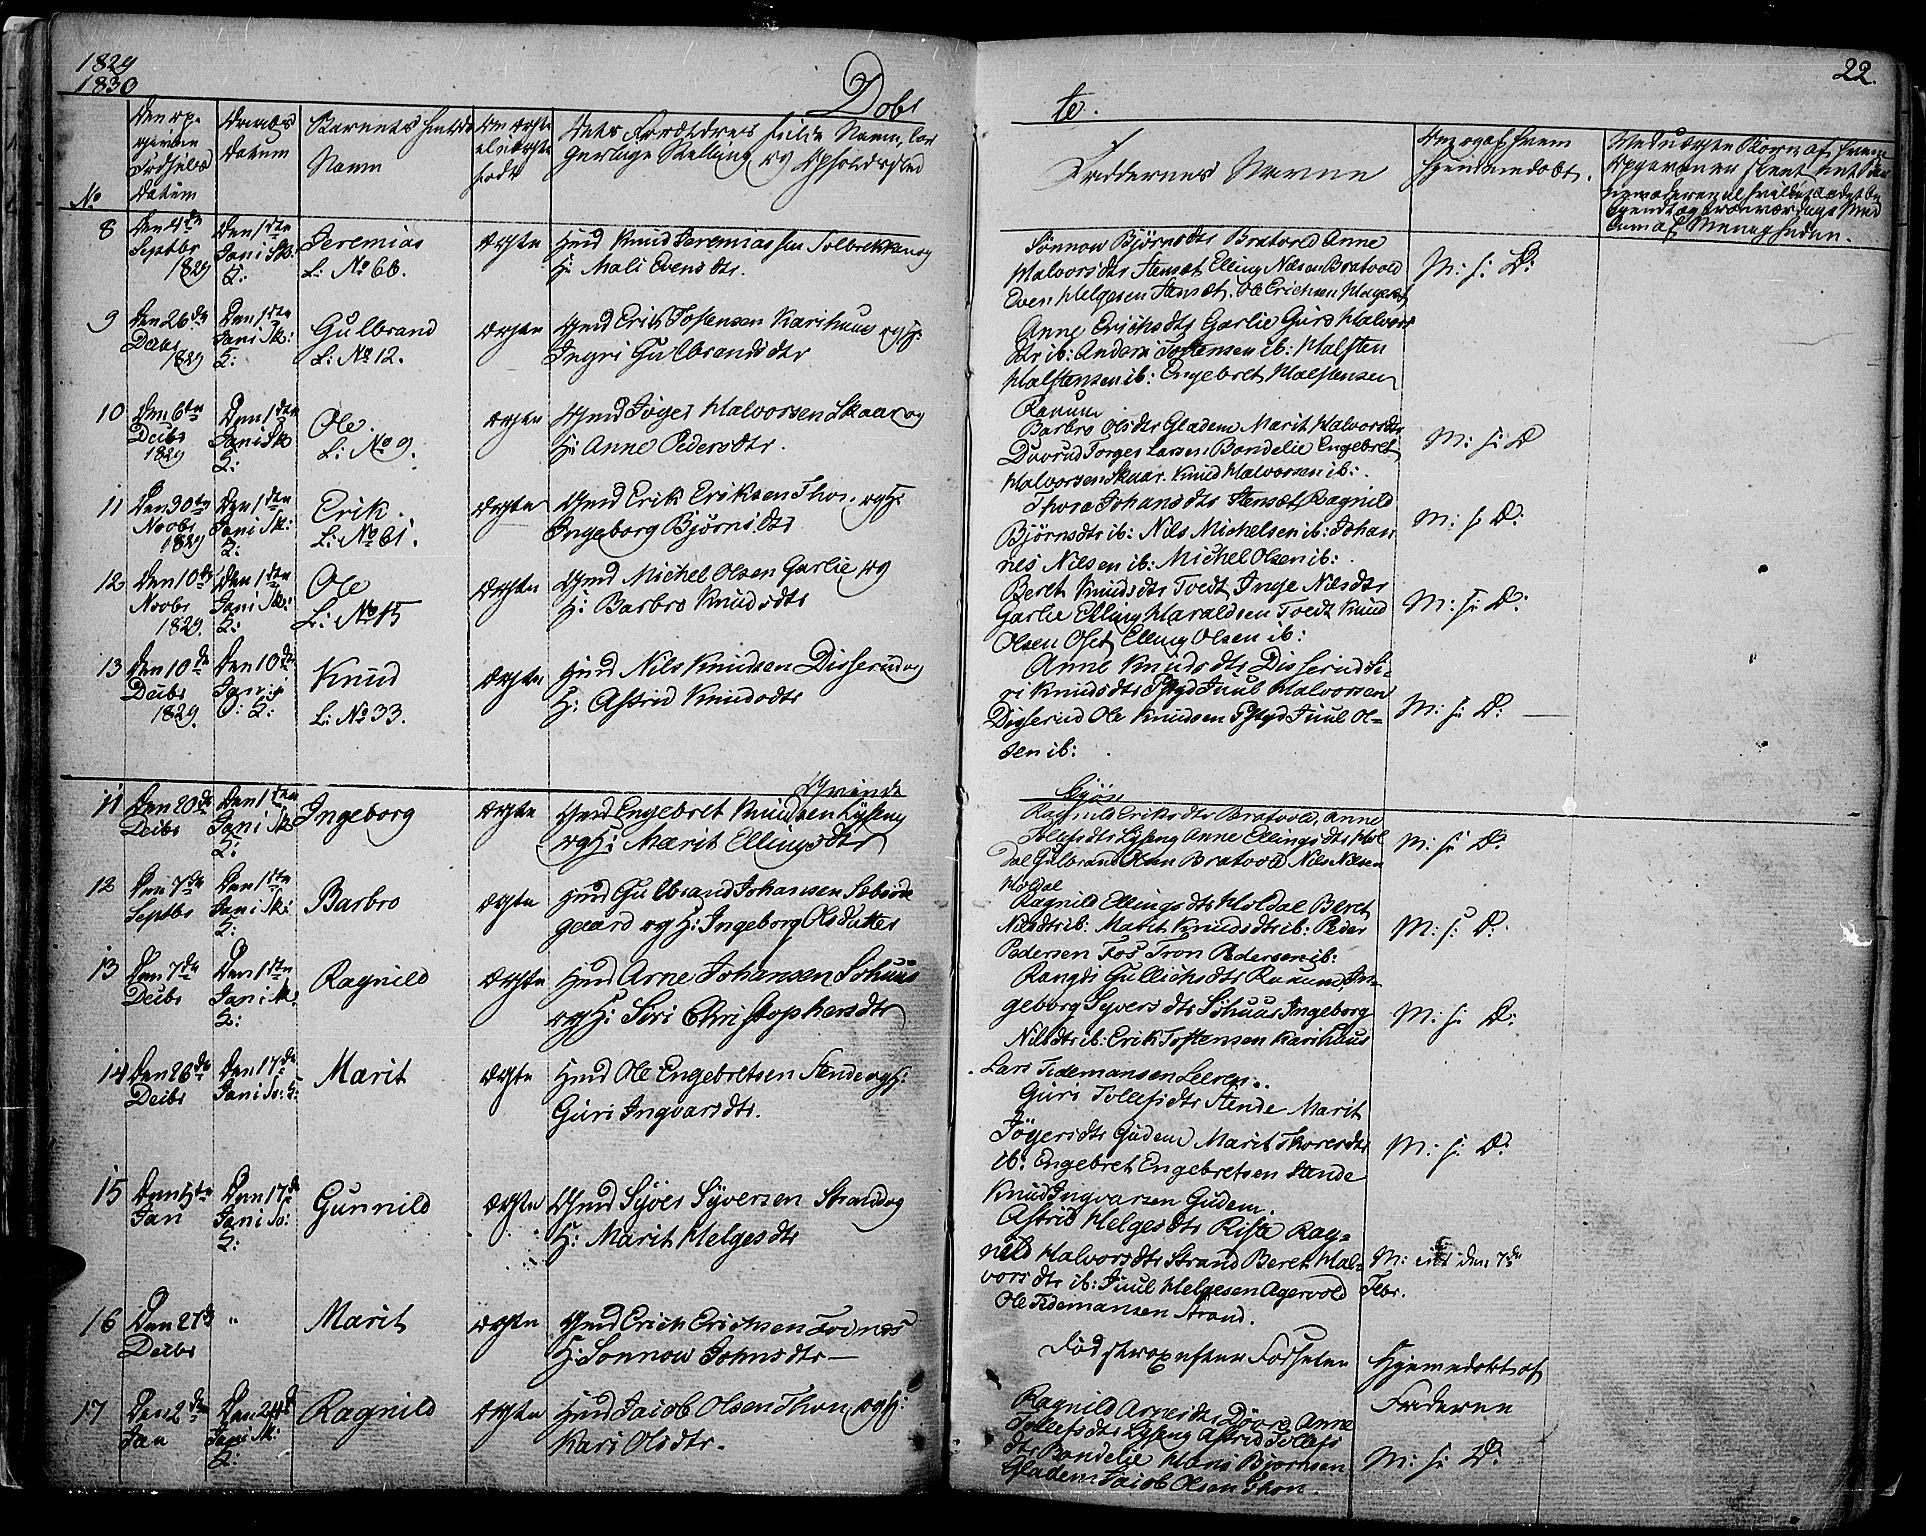 1829
1830
Dobte.
22.
No
Datum
Datum
Navn
Faddernes Navne
8
Den 4de
Septbr
1829
Den 1ste
Jan i Sk:
K:
Jeremias
L: No 66.
ægte
Gmd Knud Jeremiassen Tolbrekka og
H: Mali Evensdtr.
Sönnow Björnsdtr Bratvold Anne
Halvorsdtr Stensæt Elling Nilsen Bratvold
Even Helgesen Stensæt. Ole Erichsen
M: s: D:
9
Den 26de
Decbr
1829
Den 1ste
Jan i Sk:
K:
Gulbrand
L: No 12.
ægte
Gmd Erik Tostensen Karihuus og H:
Ingri Gulbrandsdtr
Anne Erichsdtr Garlie Guro Halvors
dtr ib: Anders Tostensen ib: Halsten
Halstensen ib: Engebret Halstensen
10
Den 6te
Decbr
1829
Den 1ste
Jan i Sk
K:
Ole.
L: No 9.
ægte
Gmd Jöger Halvorsen Skaar og
H: Anne Pedersdtr.
Barbro Olsdtr Gladem Marit Halvorsdtr
Torger Larsen Bondelie Engebret
Halvorsen Skaar. Knud Halvorsen ib:
M: s: D
11
Den 30te
Novbr
1829
Den 1ste
Jan i Sk:
K:
Erik.
L: No 61.
ægte
Gmd Erik Eriksen Thon. og H:
Ingeborg Björnsdtr
Thora Johansdtr Stensæt Ragnild
Björnsdtr ib: Nils Michelsen ib: Johan
nes Nilsen ib: Michel Olsen ib:
M: s: D:
12
Den 10de
Novbr
1829.
Den 1ste
Jan i Sk:
K:
Ole
L: No 15
ægte
Gmd Michel Olsen Garlie og
H: Barbro Knudsdtr
Beret Knudsdtr Toedt Inge Nilsdtr
Garlie Elling Haraldsen Toedt Knud
Olsen Elling Olsen ib:
M: s: D:
13
Den 10de
Decbr
1829.
Den 10de
Jan i
K:
Knud
L: No 33.
ægte
Gmd Nils Knudsen Disserud og
H: Astrid Knudsdtr
Anne Knudsdtr Disserud Si-
ri Knudsdtr Juul Halvorsen
Disserud Ole Knudsen Juul Ol-
sen ib:
M: s: D:
Qvinde
Kjøn
11
Den 20de
Decbr
Den 1ste
Jan i Sk
K:
Ingeborg
ægte
Gmd Engebret Knudsen Lyseng
og H: Marit Ellingsdtr
Ragnild Eriksdtr Bratvold, Anne
Tollefsdtr Lyseng Anne Ellingsdtr Hol
dal Gulbrand Olsen Bratvold Nils Nilsen
Holdal
M: s: D:
12
Den 7de
Septbr
Den 1ste
Jan i Sk:
K:
Barbro
ægte
Gmd Gulbrand Johansen
gaard og H: Ingeborg Olsdatter
Ragnild Ellingsdtr Holdal Beret
Nilsdtr ib: Marit Knudsdtr ib: Peder
Pedersen Fos Tron Pedersen ib:
M: s: D:
13
Den 7de
Decbr
Den 1ste
Jan i Sk
K:
Ragnild
ægte
Gmd Arne Johansen
og H: Siri Christophersdtr
Rangdi Gullichsdtr In-
geborg Syversdtr Ingeborg
Nilsdtr ib: Erik Tostensen Karihuus
Lars Tidemansen
M: s: D:
14
Den 26de
Decbr
Den 17de
Jan i
Marit
ægte
Gmd Ole Engebretsen Stende og H:
Guri Ingvarsdtr.
Guri Tollefsdtr Stende Marit
Jögersdtr Gudem Marit Thoresdtr
ib: Engebret Engebretsen Stende
Knud Ingvarsen Gudem.
M: s: D:
15
Jan
Den 17de
Jan i
K:
Gunnild
ægte
Gmd Syver Syversen Strand og
H: Marit Helgesdtr
Astrid Helgesdtr Riste Rag-
nild Halvorsdtr Strand Beret Hal-
vorsdtr ib: Juul Helgesen Agervold
Ole Tidemansen Strand.
M: den 7de
Febr.
16
Den 27de
Decbr
"
Marit
ægte
Gmd Erich Erichsen
H: Sonnow Johnsdtr
Död strax efter Födselen
Hjemmedøbt af
Faderen
17
Den 2den
Jan
Den 24de
Jan i Sk:
K:
Ragnild
ægte
Gmd Jacob Olsen Thon og H:
Kari Olsdtr.
Ragnild Arnesdtr Anne
Tollefsdtr Lyseng Astrid Tollefs
dtr Bondelie Hans Bjornsen
Gladem Jacob Olsen Thon.
M: s: D: